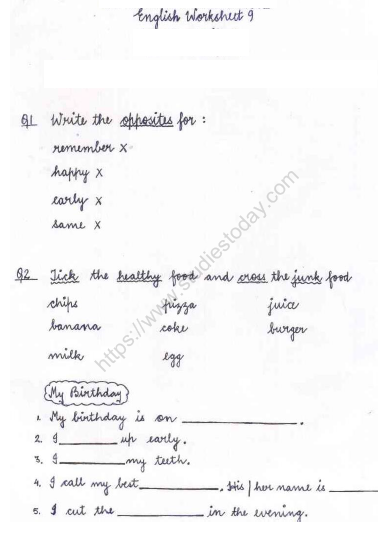 English Worksheet 9
Q1 Write the opposites for :
remember x
happy x
early x
same x
Q2 Tick the healthy food and cross the junk food
chips pizza juice
banana coke burger
milk egg
https://www.studiestoday.com
My Birthday
1. My birthday is on ____________.
2. I ______ up early.
3. I ______ my teeth.
4. I call my best ________. His / her name is ______
5. I cut the ________ in the evening.